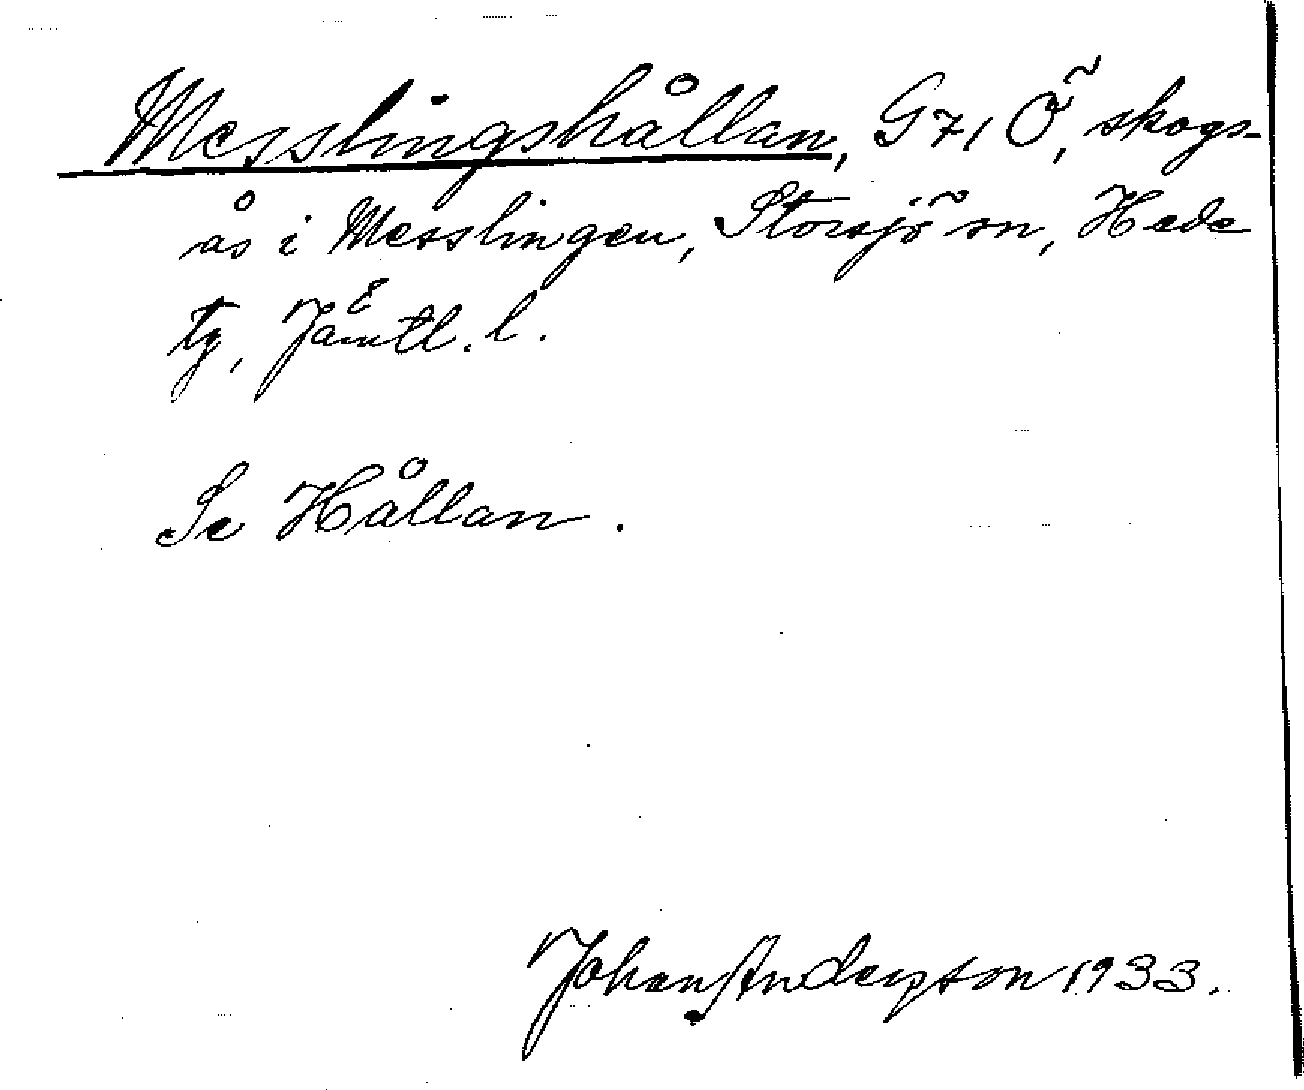 Messlingshållan, G 71 Ö, skogs-
ås i Messlingen, Storsjö sn, Hede
tg, Jämtl. l.
Se Hållan.
Johan Anderson 1933.